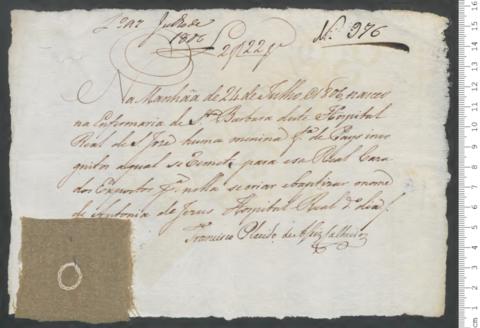 Julho de
1806
Nº 976
Na Manhãa de 24 de Julho de 1806, nasceo
na Enfermaria de Sta Barbara deste Hospital
Real de S. José huma menina fa de Pays incognitos
a qual se remete para essa Real Caza
dos Expostos pa nella se criar e baptizar o nome
de Antonia de Jezus Hospital Real do dia
Francisco Placido de